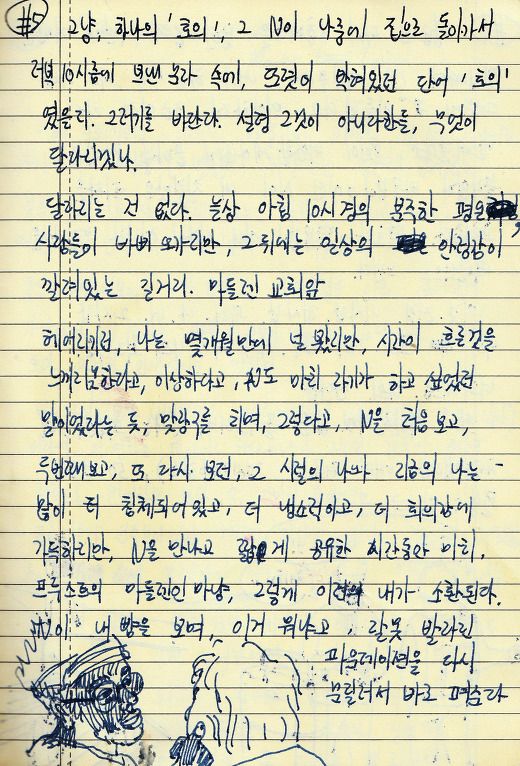 #5
그냥, 하나의 '호의', 그 N이 나중에 집으로 돌아가서
저녁 10시쯤에 보낸 문자 속에, 또렷이 박혀있던 단어 '호의'
였을라. 그러기를 바란다. 설령 그것이 아니라한들, 무엇이
달라지겠나.
달라지는 건 없다. 늘상 아침 10시경의 분주한 평일
사람들이 바삐 오가지만, 그 뒤에는 일상의 안정감이
깔려있는 길거리. 마들렌 교회앞
헤어지기전, 나는 몇개월만에 널 봤지만, 시간이 흐른것을
느끼지못한다고, 이상하다고, N도 마치 자기가 하고 싶었던
말이었다는 듯, 맞장구를 치며, 그렇다고, N을 처음보고,
두번째보고, 또 다시 보던, 그 시절의 나와 지금의 나는
많이 더 침체되어있고, 더 냉소적이고, 더 회의감에
가득하지만, N을 만나고 짧게 공유한 시간동안 마치,
프루스트의 마들렌인 마냥, 그렇게 이전의 내가 소환된다.
N이 내 뺨을 보며, 이거 뭐냐고, 잘못 발라진
파운데이션을 다시
문질러서 바로 펴준다